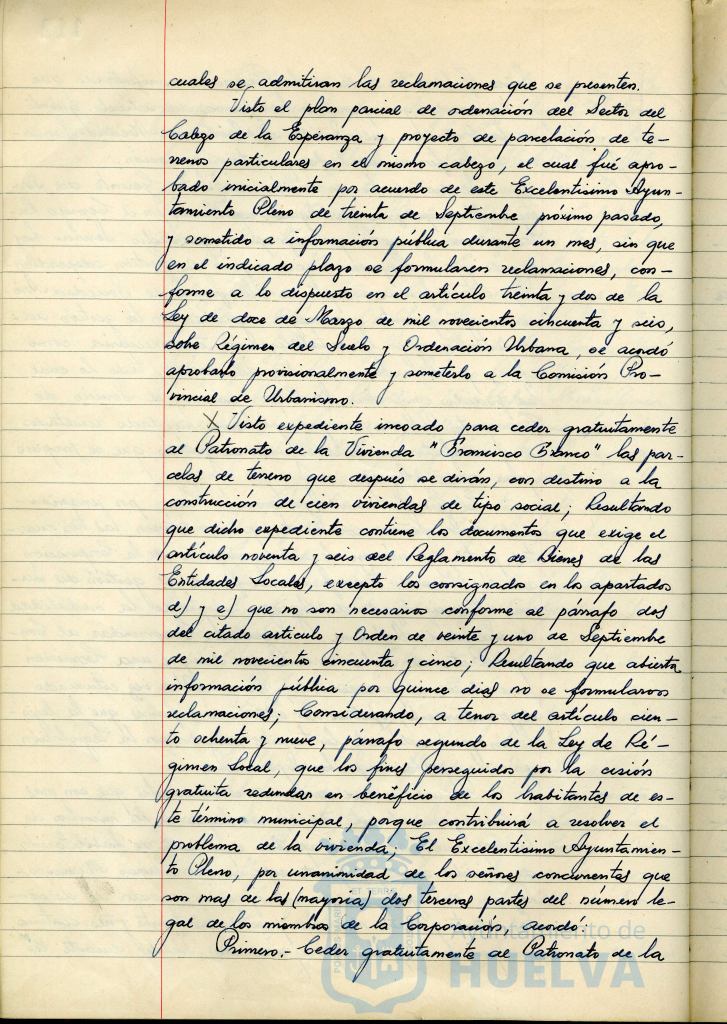 cuales se admitiran las reclamaciones que se presenten.
Visto el plan parcial de ordenación del Sector del
Cabezo de la Esperanza y proyecto de parcelación de te-
rrenos particulares en el mismo cabezo, el cual fué apro-
bado inicialmente por acuerdo de este Excelentisimo Ayun-
tamiento Pleno de treinta de Septiembre próximo pasado,
y sometido a información pública durante un mes, sin que
en el indicado plazo se formularen reclamaciones, con-
forme a lo dispuesto en el artículo treinta y dos de la
Ley de doce de Marzo de mil novecientos cincuenta y seis,
sobre Régimen del Suelo y Ordenación Urbana, se acordó
aprobarlo provisionalmente y someterlo a la Comisión Pro-
vincial de Urbanismo.
X Visto expediente incoado para ceder gratuitamente
al Patronato de la Vivienda "Francisco Franco" las par-
celas de terreno que después se dirán, con destino a la
construcción de cien viviendas de tipo social; Resultando
que dicho expediente contiene los documentos que exige el
artículo noventa y seis del Reglamento de Bienes de las
Entidades Locales, excepto los consignados en los apartados
d) y e) que no son necesarios conforme al párrafo dos
del citado articulo y Orden de veinte y uno de Septiembre
de mil novecientos cincuenta y cinco; Resultando que abierta
información pública por quince dias no se formularon
reclamaciones; Considerando, a tenor del artículo cien-
to ochenta y nueve, párrafo segundo de la Ley de Ré-
gimen Local, que los fines perseguidos por la cesión
gratuita redundan en beneficio de los habitantes de es-
te término municipal, porque contribuirá a resolver el
problema de la vivienda; El Excelentisimo Ayuntamien-
to Pleno, por unanimidad de los señores concurrentes que
son mas de las (mayoria) dos terceras partes del número le-
gal de los miembros de la Corporación, acordó:
Primero.- Ceder gratuitamente al Patronato de la
Ayuntamiento de
HUELVA